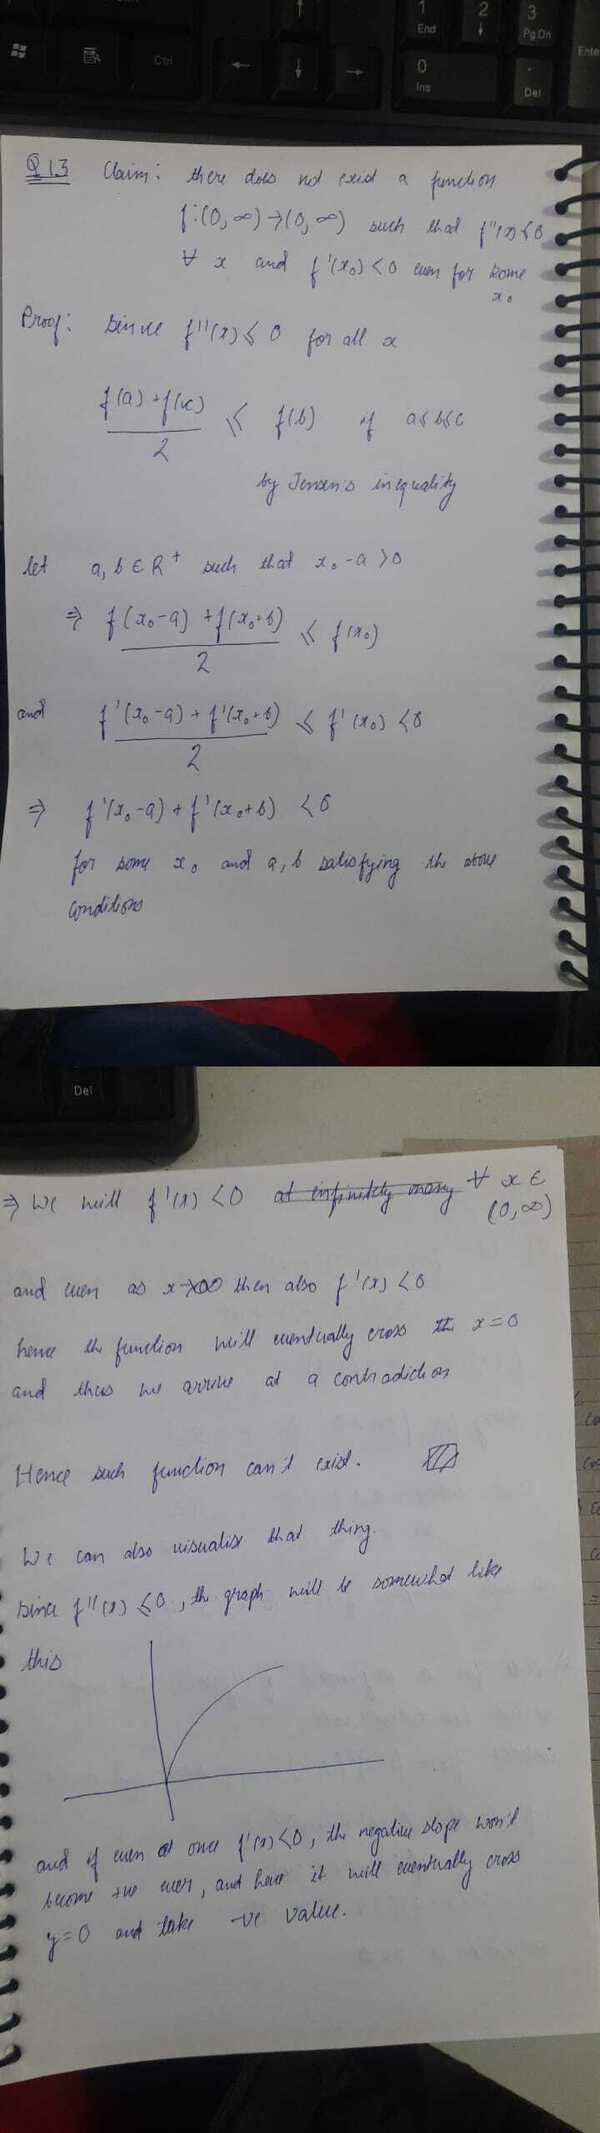 Ctrl
1
End
2
↓
3
Pg Dn
←
↑
↓
→
0
Ins
.
Del
Enter
Q 13 Claim: there does not exist a function
f:(0,∞)→(0,∞) such that f''(x)≤0
∀ x and f'(x₀)<0 even for some
x₀
Proof: Since f''(x)≤ 0 for all x
f(a)+f(c)
2
≤ f(b) if a≤b≤c
by Jensen's inequality
let a, b ∈ R⁺ such that x₀-a>0
⇒ f(x₀-a) + f(x₀+b)
2
≤ f(x₀)
and f'(x₀-a) + f'(x₀+b)
2
≤ f'(x₀) <0
⇒ f'(x₀-a) + f'(x₀+b) <0
for some x₀ and a, b satisfying the above
conditions
Del
⇒ We will f'(x) <0 at infinitely many ∀ x ∈
(0,∞)
and even as x→∞ then also f'(x) <0
hence the function will eventually cross the x=0
and thus we arrive at a contradiction
Hence such function can't exist.
We can also visualise that thing.
since f''(x) ≤0, th graph will be somewhat like
this
and if even at once f'(x)<0, the negative slope won't
become +ve ever, and hence it will eventually cross
y=0 and take -ve value.